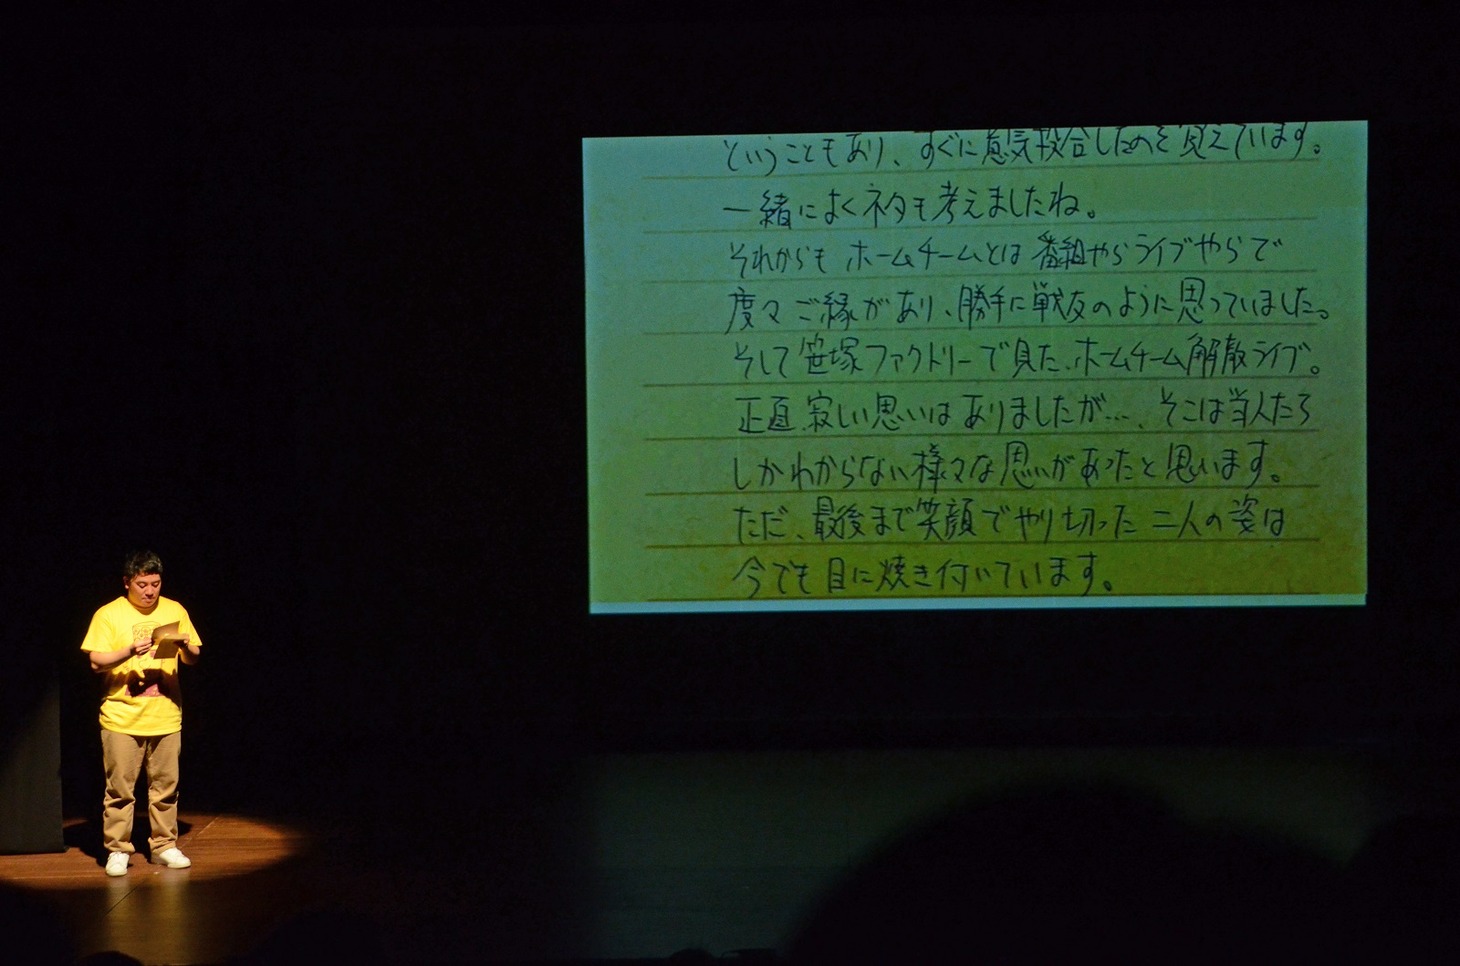 ということもあり、すぐに意気投合したのを覚えています。
一緒によくネタも考えましたね。
それからも ホームチームとは 番組やらライブやらで
度々ご縁があり、勝手に戦友のように思っていました。
そして笹塚ファクトリーで見た、ホームチーム解散ライブ。
正直、寂しい思いはありましたが…、そこは当人たち
しかわからない様々な思いがあったと思います。
ただ、最後まで笑顔でやり切った二人の姿は
今でも目に焼き付いています。